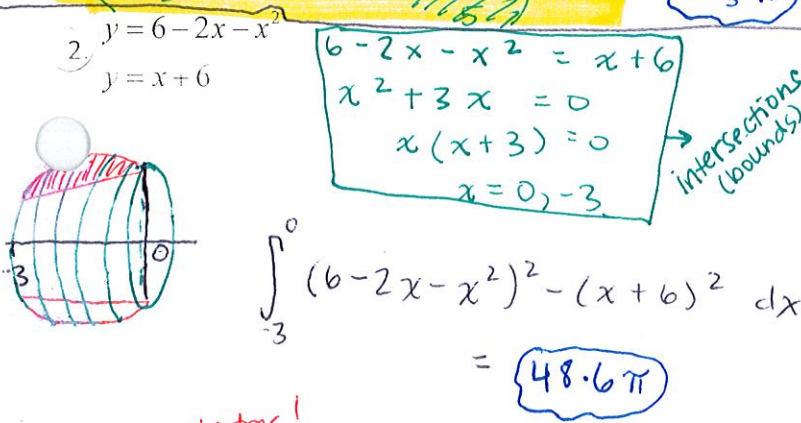 2. y = 6 − 2x − x²
y = x + 6
6 - 2x - x² = x + 6
x² + 3x = 0
x(x+3) = 0
x = 0, -3
→ intersections
(bounds)
-3 0
∫₋₃⁰ (6 - 2x - x²)² - (x + 6)² dx
= 48.6 π